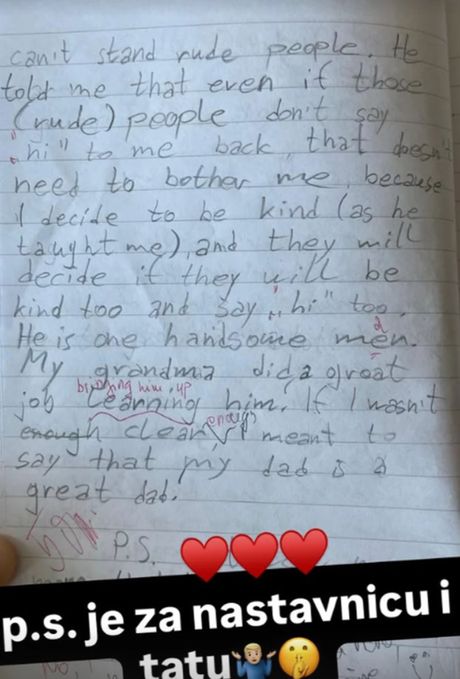 can't stand rude people. He
told me that even if those
(rude) people don't say
"hi" to me back, that doesn't
need to bother me, because
I decide to be kind (as he
taught me), and they will
decide if they will be
kind too and say „hi" too.
He is one handsome men.
a
My grandma did a great
bringing him up
job learning him. If I wasn't
enough
enough clear, I meant to
say that my dad is a
great dad.
P.S.
p.s. je za nastavnicu i
tatu